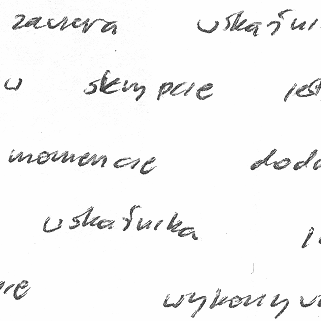 zawiera wskaźni
w skrypcie jest
momencie doda
wskaźnika
nie wykonyw